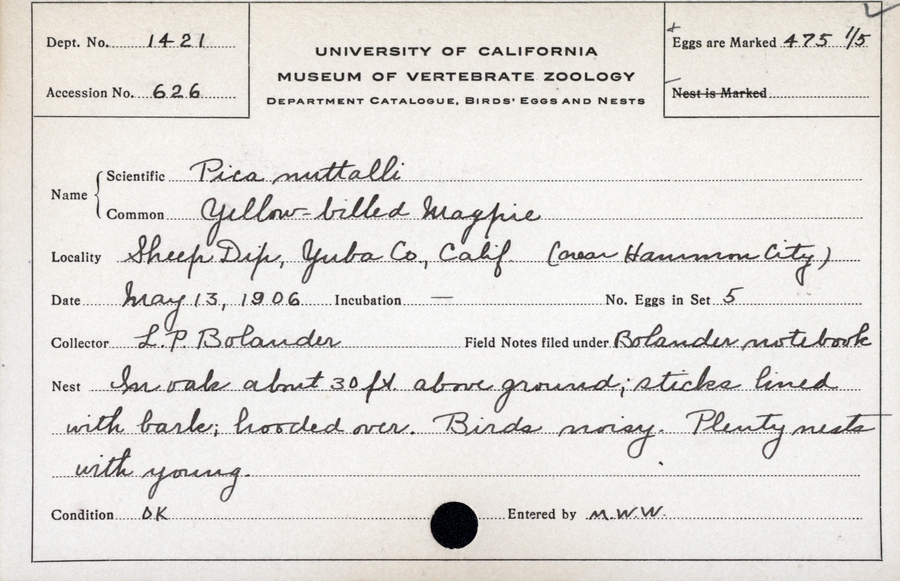 Dept. No. 1421
Accession No. 626
UNIVERSITY OF CALIFORNIA
MUSEUM OF VERTEBRATE ZOOLOGY
DEPARTMENT CATALOGUE, BIRDS' EGGS AND NESTS
Eggs are Marked 475 1/5
Nest is Marked
Name
Scientific Pica nuttalli
Common Yellow-billed Magpie
Locality Sheep Dip, Yuba Co., Calif (near Hammon City)
Date May 13, 1906 Incubation — No. Eggs in Set 5
Collector L.P. Bolander Field Notes filed under Bolander notebook
Nest In oak about 30 ft. above ground; sticks lined
with bark; hooded over. Birds noisy. Plenty nests
with young.
Condition OK Entered by M.W.W.